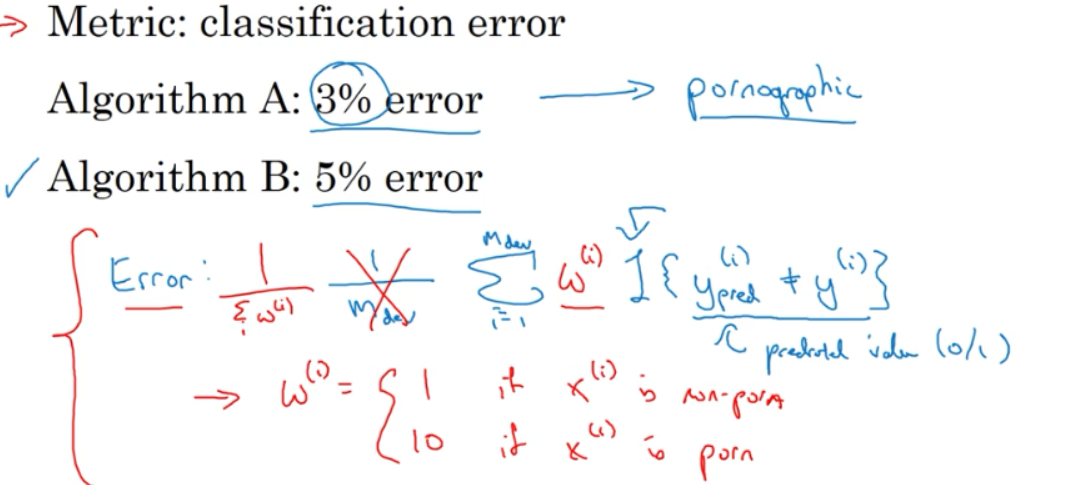 → Metric: classification error
Algorithm A: 3% error → pornographic
✓ Algorithm B: 5% error
Error: 1/Σᵢ w⁽ⁱ⁾ 1/m_dev Σᵢ₌₁^{m_dev} w⁽ⁱ⁾ I{y_pred⁽ⁱ⁾ ≠ y⁽ⁱ⁾}
predicted value (0/1)
→ w⁽ⁱ⁾ = { 1 if x⁽ⁱ⁾ is non-porn
10 if x⁽ⁱ⁾ is porn